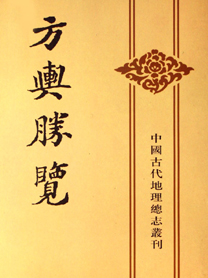 方輿勝覽
中國古代地理總志叢刊